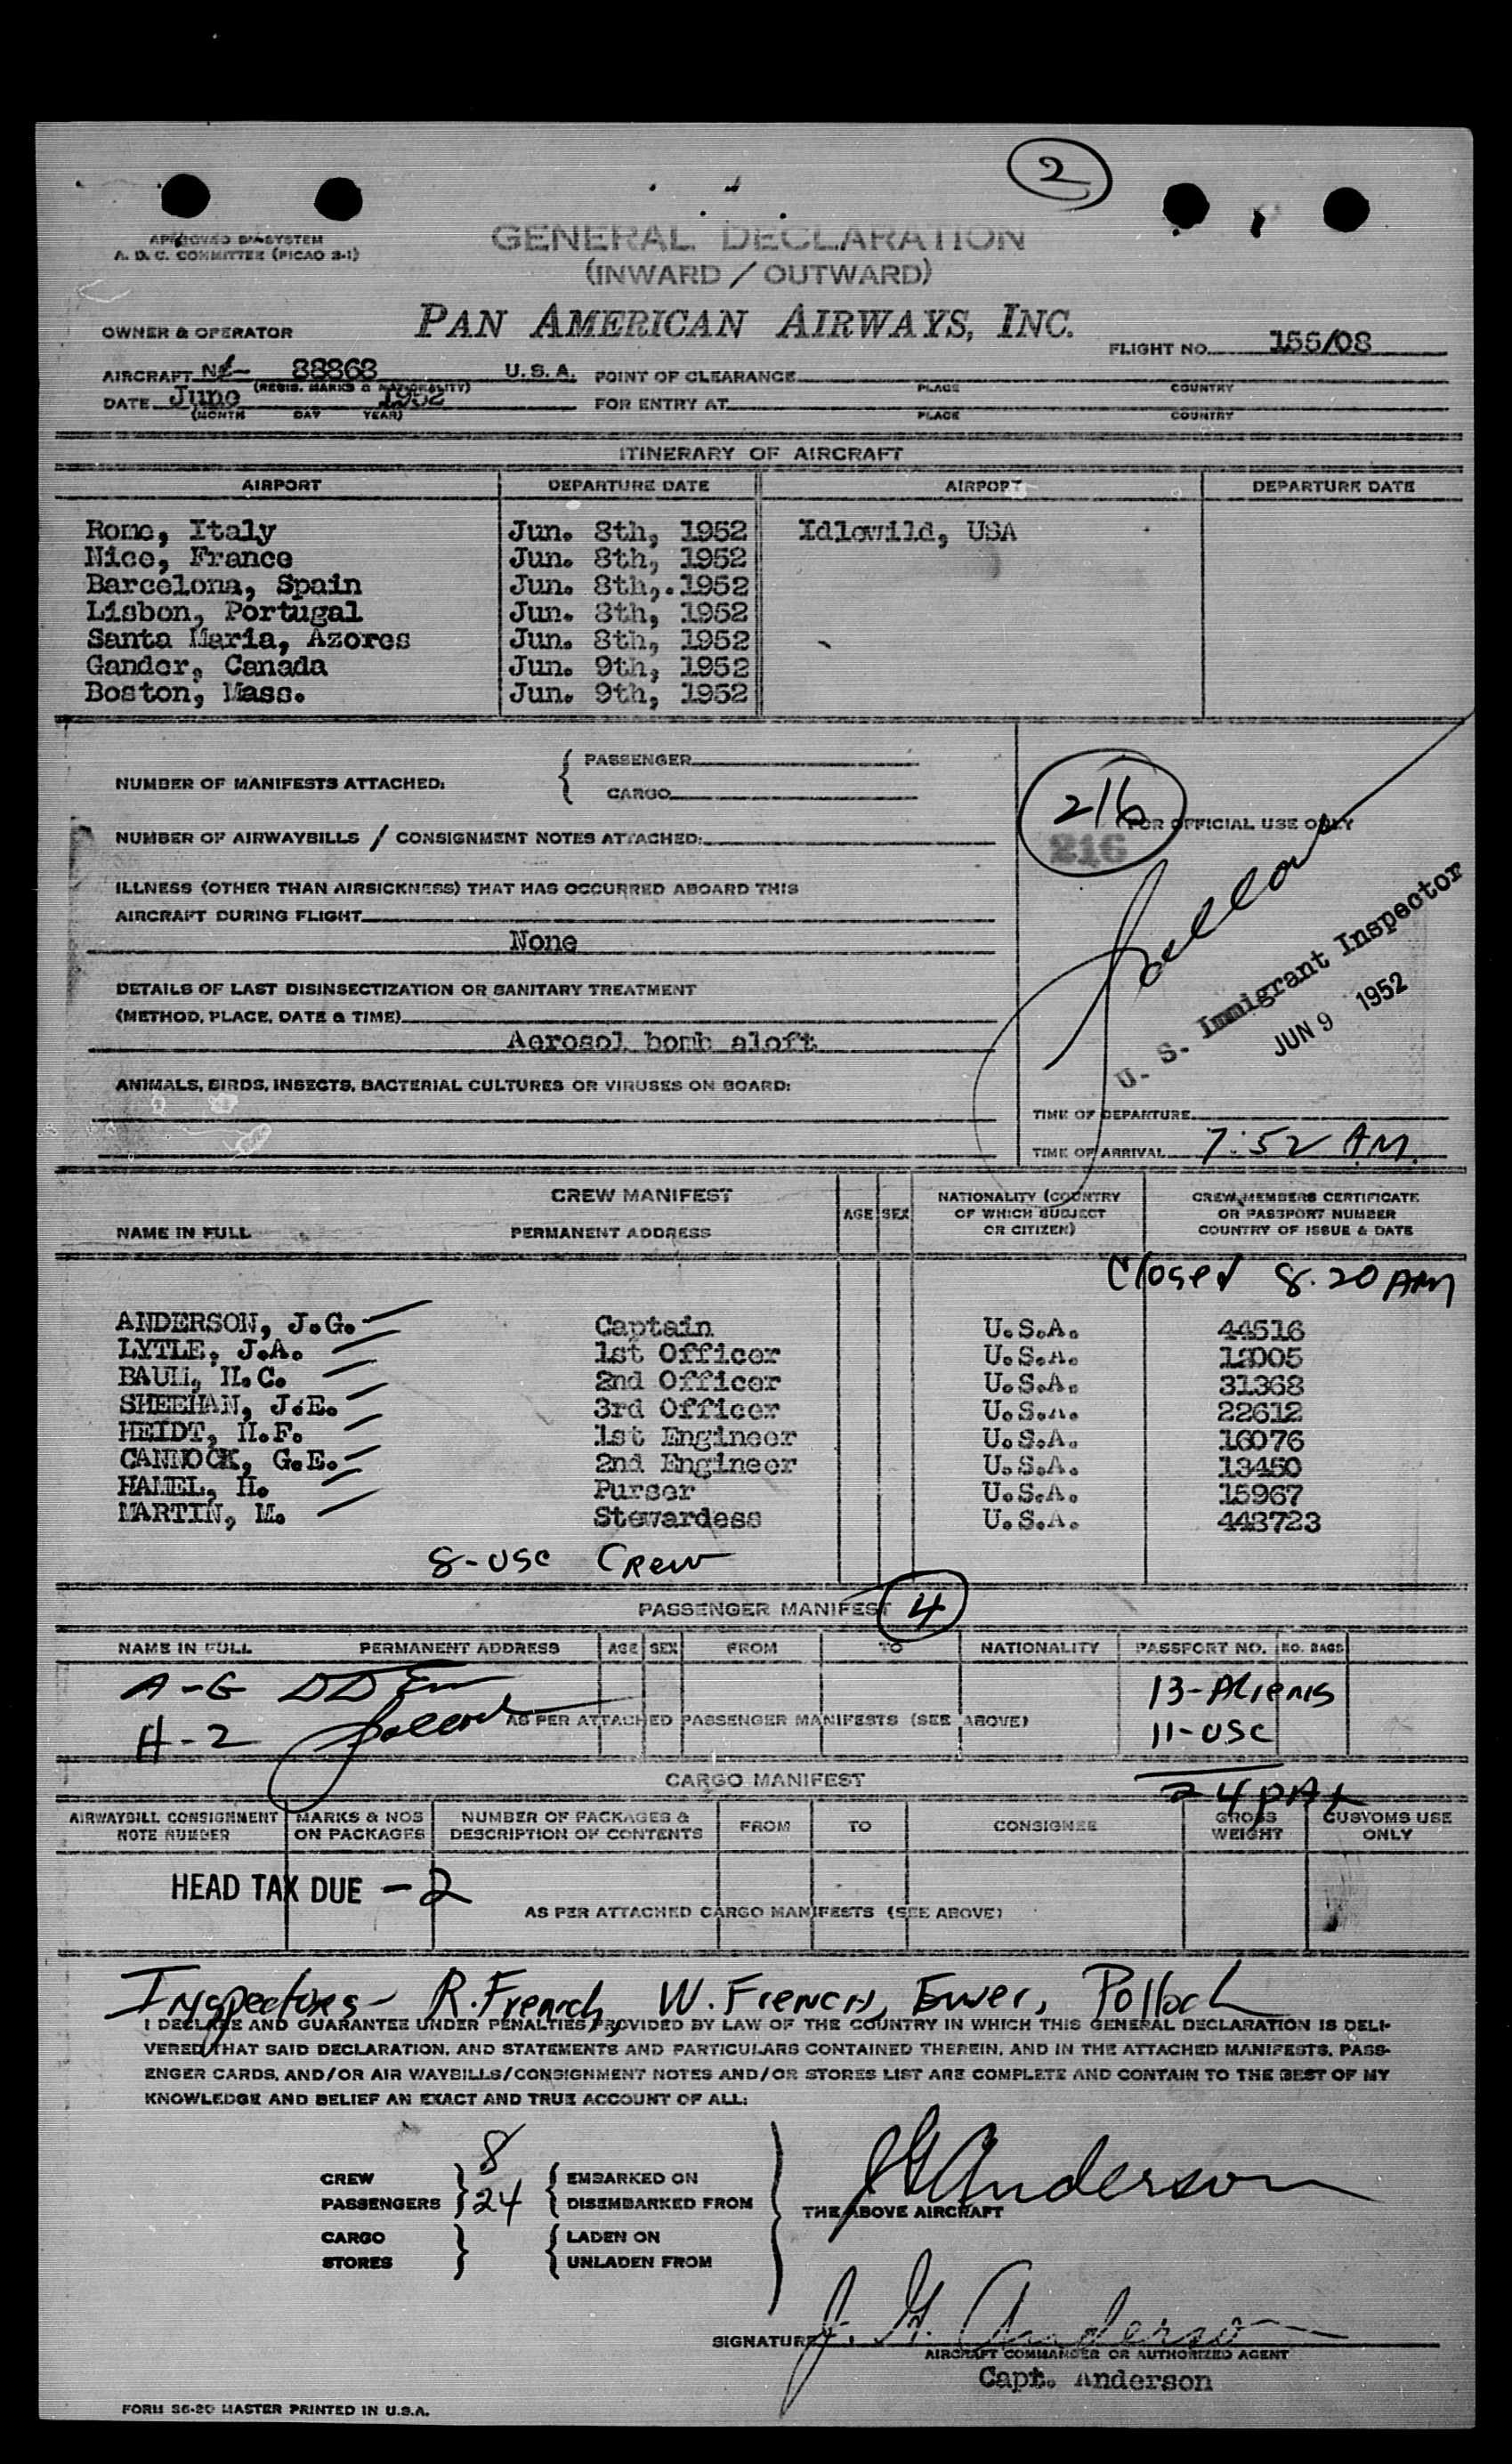 2
APPROVED BY SYSTEM
A. D. C. COMMITTEE (PICAO 2-1)
GENERAL DECLARATION
(INWARD / OUTWARD)
OWNER & OPERATOR
PAN AMERICAN AIRWAYS, INC.
FLIGHT NO. 155/08
AIRCRAFT 88868 U.S.A. POINT OF CLEARANCE
(REGIS. MARKS & NATIONALITY) PLACE COUNTRY
DATE June 1952 FOR ENTRY AT
(MONTH DAY YEAR) PLACE COUNTRY
ITINERARY OF AIRCRAFT
AIRPORT DEPARTURE DATE AIRPORT DEPARTURE DATE
Rome, Italy Jun. 8th, 1952 Idlewild, USA
Nice, France Jun. 8th, 1952
Barcelona, Spain Jun. 8th, 1952
Lisbon, Portugal Jun. 8th, 1952
Santa Maria, Azores Jun. 8th, 1952
Gander, Canada Jun. 9th, 1952
Boston, Mass. Jun. 9th, 1952
NUMBER OF MANIFESTS ATTACHED:
PASSENGER
CARGO
216
FOR OFFICIAL USE ONLY
216
NUMBER OF AIRWAYBILLS / CONSIGNMENT NOTES ATTACHED:
ILLNESS (OTHER THAN AIRSICKNESS) THAT HAS OCCURRED ABOARD THIS
AIRCRAFT DURING FLIGHT
None
DETAILS OF LAST DISINSECTIZATION OR SANITARY TREATMENT
(METHOD, PLACE, DATE & TIME)
Aerosol bomb aloft
ANIMALS, BIRDS, INSECTS, BACTERIAL CULTURES OR VIRUSES ON BOARD:
U. S. Immigrant Inspector
JUN 9 1952
TIME OF DEPARTURE
TIME OF ARRIVAL 7:52 AM.
CREW MANIFEST
NAME IN FULL PERMANENT ADDRESS AGE SEX
NATIONALITY (COUNTRY
OF WHICH SUBJECT
OR CITIZEN)
CREW MEMBERS CERTIFICATE
OR PASSPORT NUMBER
COUNTRY OF ISSUE & DATE
Closed 8.20 AM
ANDERSON, J.G. Captain U.S.A. 44516
LYTLE, J.A. 1st Officer U.S.A. 12005
BAULL, H.C. 2nd Officer U.S.A. 31368
SHEEHAN, J.E. 3rd Officer U.S.A. 22612
HEIDT, H.F. 1st Engineer U.S.A. 16076
CANNOCK, G.E. 2nd Engineer U.S.A. 13450
HAMEL, H. Purser U.S.A. 15967
MARTIN, M. Stewardess U.S.A. 443723
8-USC CREW
PASSENGER MANIFEST 4
NAME IN FULL PERMANENT ADDRESS AGE SEX FROM TO NATIONALITY PASSPORT NO. NO. BAGS
A-G
13-Aliens
H-Z
AS PER ATTACHED PASSENGER MANIFESTS (SEE ABOVE)
11-USC
24 PAX
CARGO MANIFEST
AIRWAYBILL CONSIGNMENT
NOTE NUMBER
MARKS & NOS
ON PACKAGES
NUMBER OF PACKAGES &
DESCRIPTION OF CONTENTS
FROM TO CONSIGNEE
GROSS
WEIGHT
CUSTOMS USE
ONLY
HEAD TAX DUE - 2
AS PER ATTACHED CARGO MANIFESTS (SEE ABOVE)
Inspectors - R. French, W. French, Ewer, Pollock
I DECLARE AND GUARANTEE UNDER PENALTIES PROVIDED BY LAW OF THE COUNTRY IN WHICH THIS GENERAL DECLARATION IS DELI-
VERED THAT SAID DECLARATION, AND STATEMENTS AND PARTICULARS CONTAINED THEREIN, AND IN THE ATTACHED MANIFESTS, PASS-
ENGER CARDS, AND/OR AIR WAYBILLS/CONSIGNMENT NOTES AND/OR STORES LIST ARE COMPLETE AND CONTAIN TO THE BEST OF MY
KNOWLEDGE AND BELIEF AN EXACT AND TRUE ACCOUNT OF ALL:
CREW 8 EMBARKED ON
PASSENGERS 24 DISEMBARKED FROM
CARGO LADEN ON
STORES UNLADEN FROM
JG Anderson
THE ABOVE AIRCRAFT
SIGNATURE J. G. Anderson
AIRCRAFT COMMANDER OR AUTHORIZED AGENT
Capt. Anderson
FORM 86-20 MASTER PRINTED IN U.S.A.